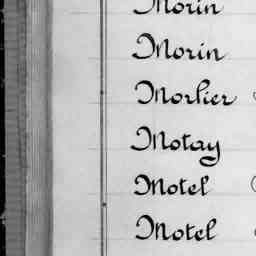 Morin
Morin
Morlier
Motay
Motel
Motel